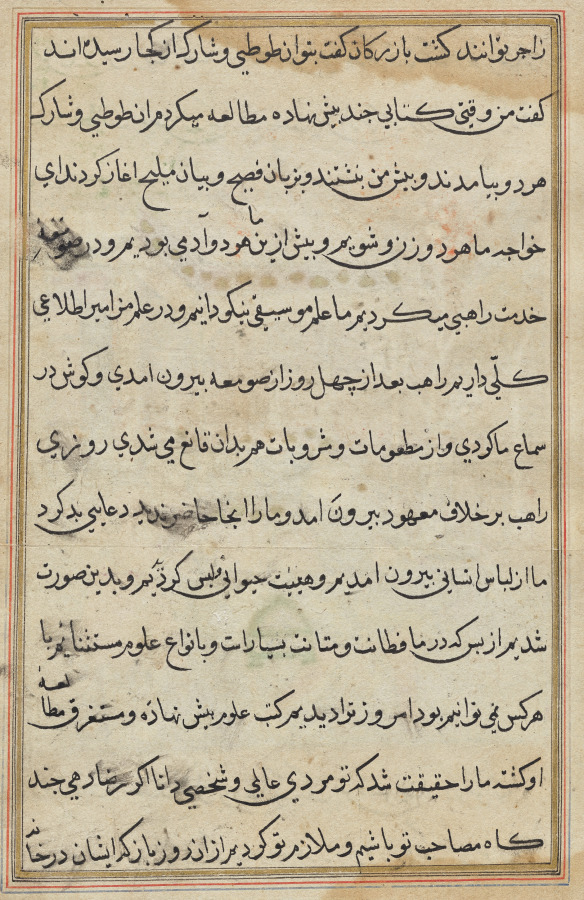 را چه توانند کشت بازرکان کفت بتوان طوطیی و شارک از کجا رسیده اند
کفت من وقتی کتابی چند پیش نهاده مطالعه میکردم ان طوطیی و شارک
هر دو بیامدند و پیش من بنشستند و بزبان فصیح و بیان ملیح اغاز کردند ای
خواجه ما هر دو زن و شویم و پیش از ین ما هر دو آدمی بودیم و در صومعه
خدمت راهبی میکردیم ما علم موسیقی نیکو دانیم و در علم مزامیر اطلاعی
کلّی داریم راهب بعد از چهل روز از صومعه بیرون امدی و کوش در
سماع ما کردی و از مطعومات و مشروبات هم بدان قانع می شدی روزی
راهب بر خلاف معهود بیرون امد و ما را انجا حاضر ندید دعایی بد کرد
ما از لباس انسانی بیرون امدیم و هییت حیوانی ملبس کردیم و بدین صورت
شدیم از بس که در ما فطانت و متانت بسیار است و بانواع علوم مستثناییم با
هر کس نمی توانیم بود امروز ترا دیدیم کتب علوم پیش نهاده و مستغرق مطالعه
او کشته ما را حقیقت شد که تو مردی عالمی و شخصی دانا اکر رضا دهی چند
کاه مصاحب تو باشیم و ملازم تو کردیم از ان روز باز که ایشان در خانه